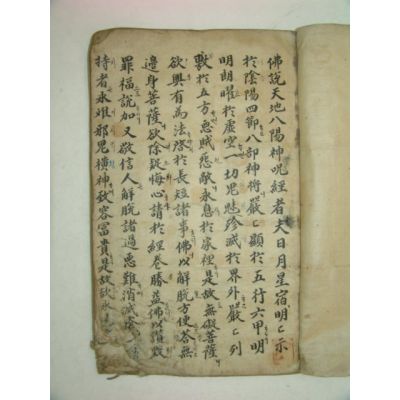 佛説天地八陽神呪經者夫日月星宿明〻示
於陰陽四節八部神將嚴〻顯於五行六甲明
明朗曜於虛空一切鬼魅殄滅於界外嚴〻列
於五方惡賊怨敵永息於家裡是故無礙菩薩
欲興有為法橙於長短諸事佛以解脫方便答無
邊身菩薩欲除疑悔心請於經卷勝益佛以讀
罪福説加又敬信人解脫諸過惡難消滅
持者永難邪鬼橫神致容富貴是故